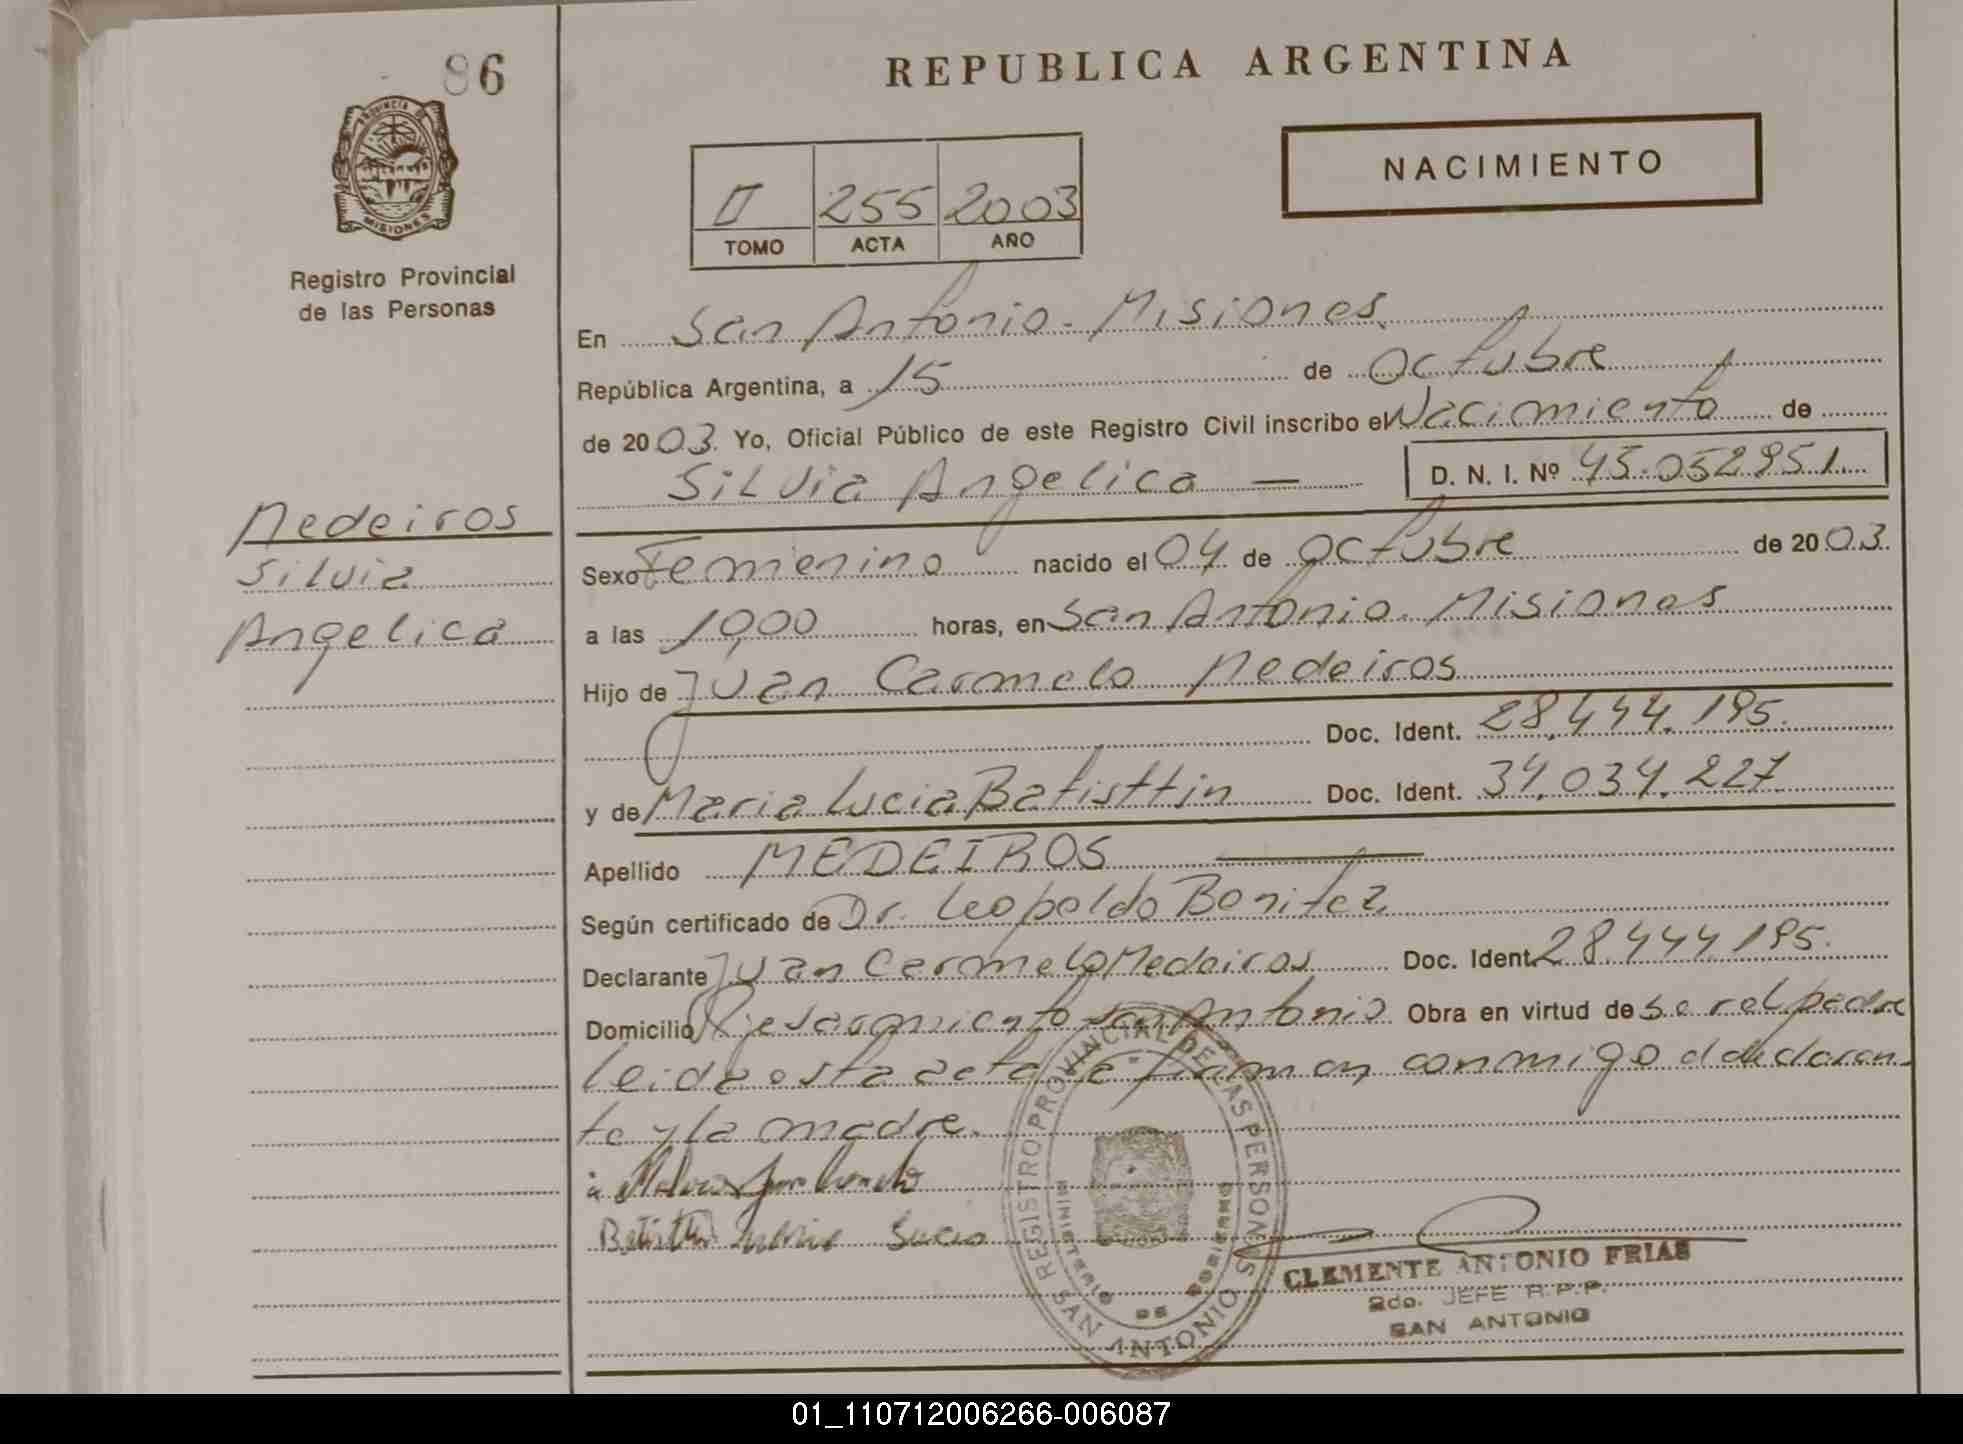 86
REPUBLICA ARGENTINA
NACIMIENTO
PROVINCIA DE
MISIONES
Registro Provincial
de las Personas
II 255 2003
TOMO ACTA AÑO
En San Antonio - Misiones
República Argentina, a 15 de Octubre
de 2003. Yo, Oficial Público de este Registro Civil inscribo el Nacimiento de
Silvia Angelica — D. N. I. Nº 45.052951
Medeiros
Silvia
Angelica
Sexo Femienino nacido el 04 de octubre de 2003.
a las 10,00 horas, en San Antonio. Misiones
Hijo de Juan Carmelo Medeiros
Doc. Ident. 28.444.195.
y de Maria Lucia Batisttin Doc. Ident. 34.034.227
Apellido MEDEIROS —
Según certificado de Dr. Leopoldo Benitez
Declarante Juan Carmelo Medeiros Doc. Ident. 28.444195.
Domicilio San Antonio Obra en virtud de ser el padre
leida esta acta la firman conmigo el declaran-
te y la madre.
REGISTRO PROVINCIAL DE LAS PERSONAS
MINISTERIO DE GOBIERNO
SAN ANTONIO
CLEMENTE ANTONIO FRIAS
2do. JEFE R.P.P.
SAN ANTONIO
01_110712006266-006087